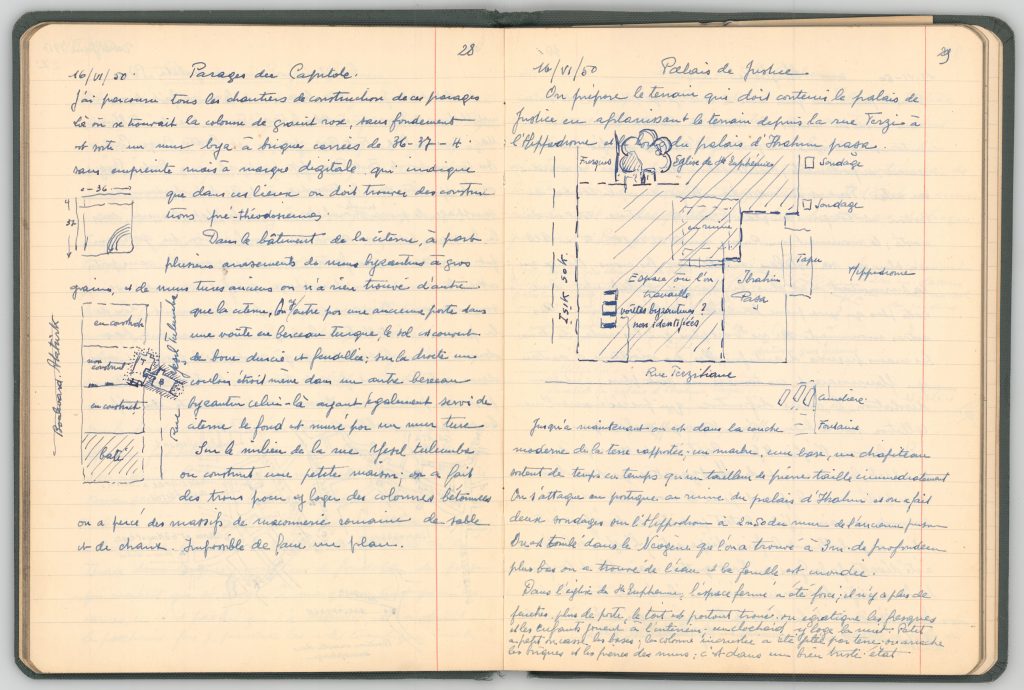 28
16/VI/50. Parages du Capitole.
J'ai parcouru tous les chantiers de construction de ces parages
Là où se trouvait la colonne de granit rose, sans fondement
est sorti un mur byz. à briques carrées de 36-37-4.
sans empreinte mais à marque digitale qui indique
que dans ces lieux on doit trouver des construc
tions pré-théodosiennes.
36
4
37
Dans le bâtiment de la citerne, à part
plusieurs arasements de murs byzantins à gros
grains, et de murs turcs anciens on n'a rien trouvé d'autre
que la citerne, on entre par une ancienne porte dans
une voûte en berceau turque, le sol est couvert
de boue durcie et fendillée; sur la droite un
couloir étroit mène dans un autre berceau
byzantin celui-là ayant également servi de
citerne le fond est muré par un mur turc
Sur le milieu de la rue Yesel tulumba
on construit une petite maison; on a fait
des trous pour y loger des colonnes bétonnées
on a percé des massifs de maçonnerie romaine de sable
et de chaux. Impossible de faire un plan.
Boulevard Atatürk
en construct
non construit
en construct
bâti
Rue Yesel tulumba
29
16/VI/50 Palais de Justice
On prépare le terrain qui doit contenir le palais de
Justice en aplanissant le terrain depuis la rue Terzis à
l'Hippodrome et du palais d'Ibrahim pasa.
Fresques
Eglise de Ste Euphémie
Sondage
Sondage
en ruine
Tapu
Hippodrome
Isik sok.
Espace où l'on
travaille
voûtes byzantines?
non identifiées
Ibrahim
Pasa
Rue Terzihane
Cimetière
Fontaine
Jusqu'à maintenant on est dans la couche
moderne de la terre rapportée; un marbre, une base, un chapiteau
sortent de temps en temps qu'un tailleur de pierre taille immédiatement
On s'attaque au portique en ruine du palais d'Ibrahim et on a fait
deux sondages sur l'Hippodrome à 2m50 du mur de l'ancienne prison
On est tombé dans le Néogène que l'on a trouvé à 3m. de profondeur
plus bas on a trouvé de l'eau et la fouille est inondée.
Dans l'église de Ste Euphémie, l'espace fermé a été forcé; il n'y a plus de
fenêtres, plus de porte, le toit est partout troué. on égratigne les fresques
et les enfants jouent à l'intérieur. un clochard y loge la nuit. Petit
à petit on casse les bases. la colonne incrustée a été jetée par terre on arrache
les briques et les pierres des murs; c'est dans un bien triste état